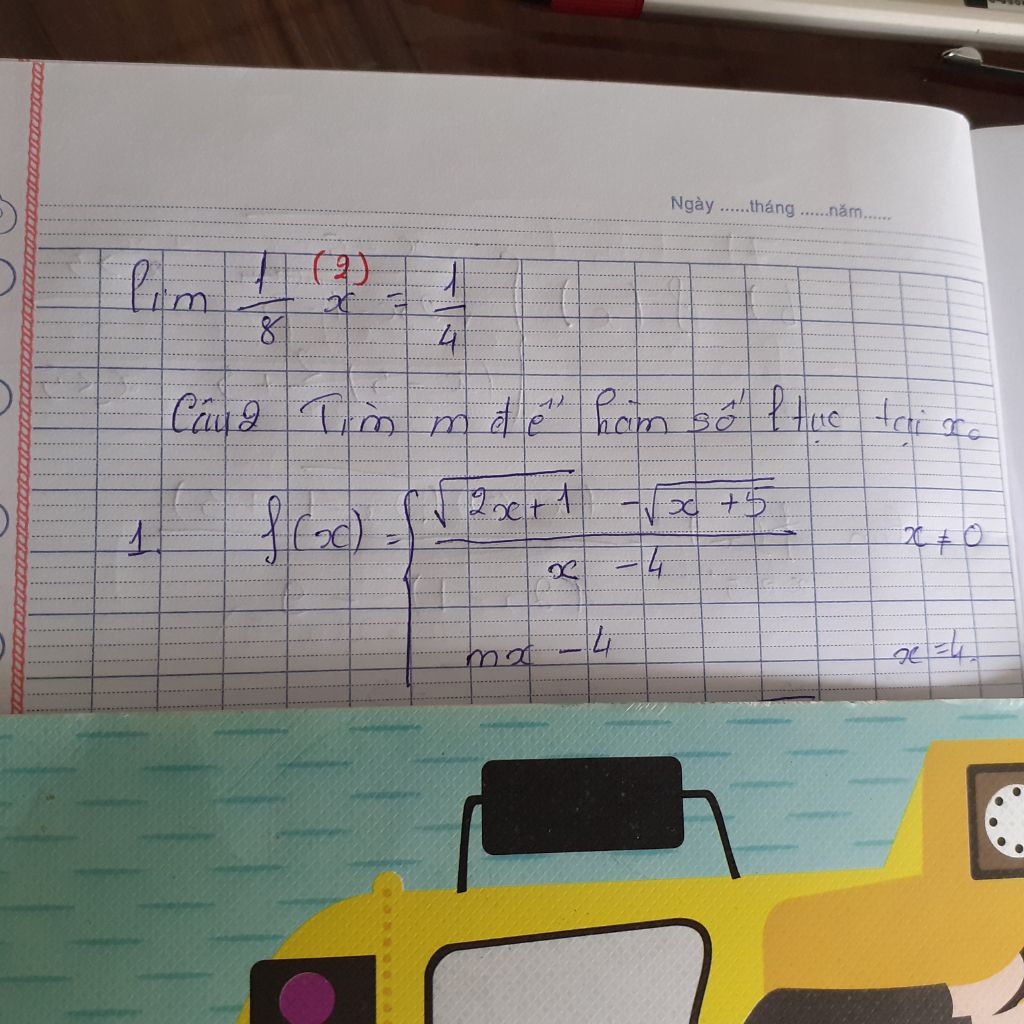 Ngày ......tháng ......năm......
lim 1/8 x (2) = 1/4
Câu 2 Tìm m để hàm số ltục tại x₀
1. f(x) = { (√(2x+1) - √(x+5))/(x-4) x ≠ 0
mx - 4 x = 4.